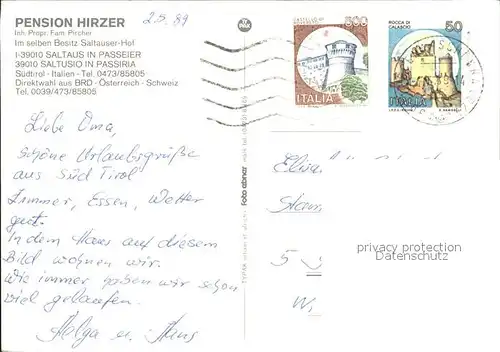 PENSION HIRZER
2.5.89
Inh. Propr. Fam. Pircher
Im selben Besitz Saltauser-Hof
I-39010 SALTAUS IN PASSEIER
39010 SALTUSIO IN PASSIRIA
Südtirol - Italien - Tel. 0473/85805
Direktwahl aus BRD - Österreich - Schweiz
Tel. 0039/473/85805
Liebe Oma,
schöne Urlaubsgrüße
aus Süd Tirol
Zimmer, Essen, Wetter
gut.
In dem Haus auf diesem
Bild wohnen wir.
Wie immer haben wir schon
viel gelaufen.
Helga u. Hans
foto ebner
300
ITALIA
ROCCA DI
CALASCIO
50
ITALIA
Elis
5
W
privacy protection
Datenschutz